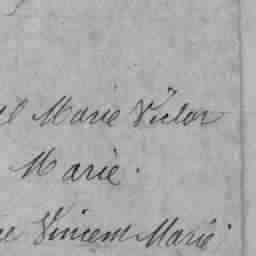 Marie Victor
Marie.
Vincent Marie